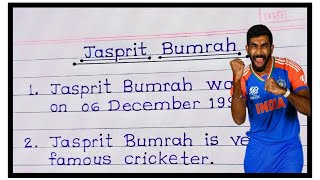 Jasprit Bumrah
1. Jasprit Bumrah wa
on 06 December 199
2. Jasprit Bumrah is ve
famous cricketer.
INDIA